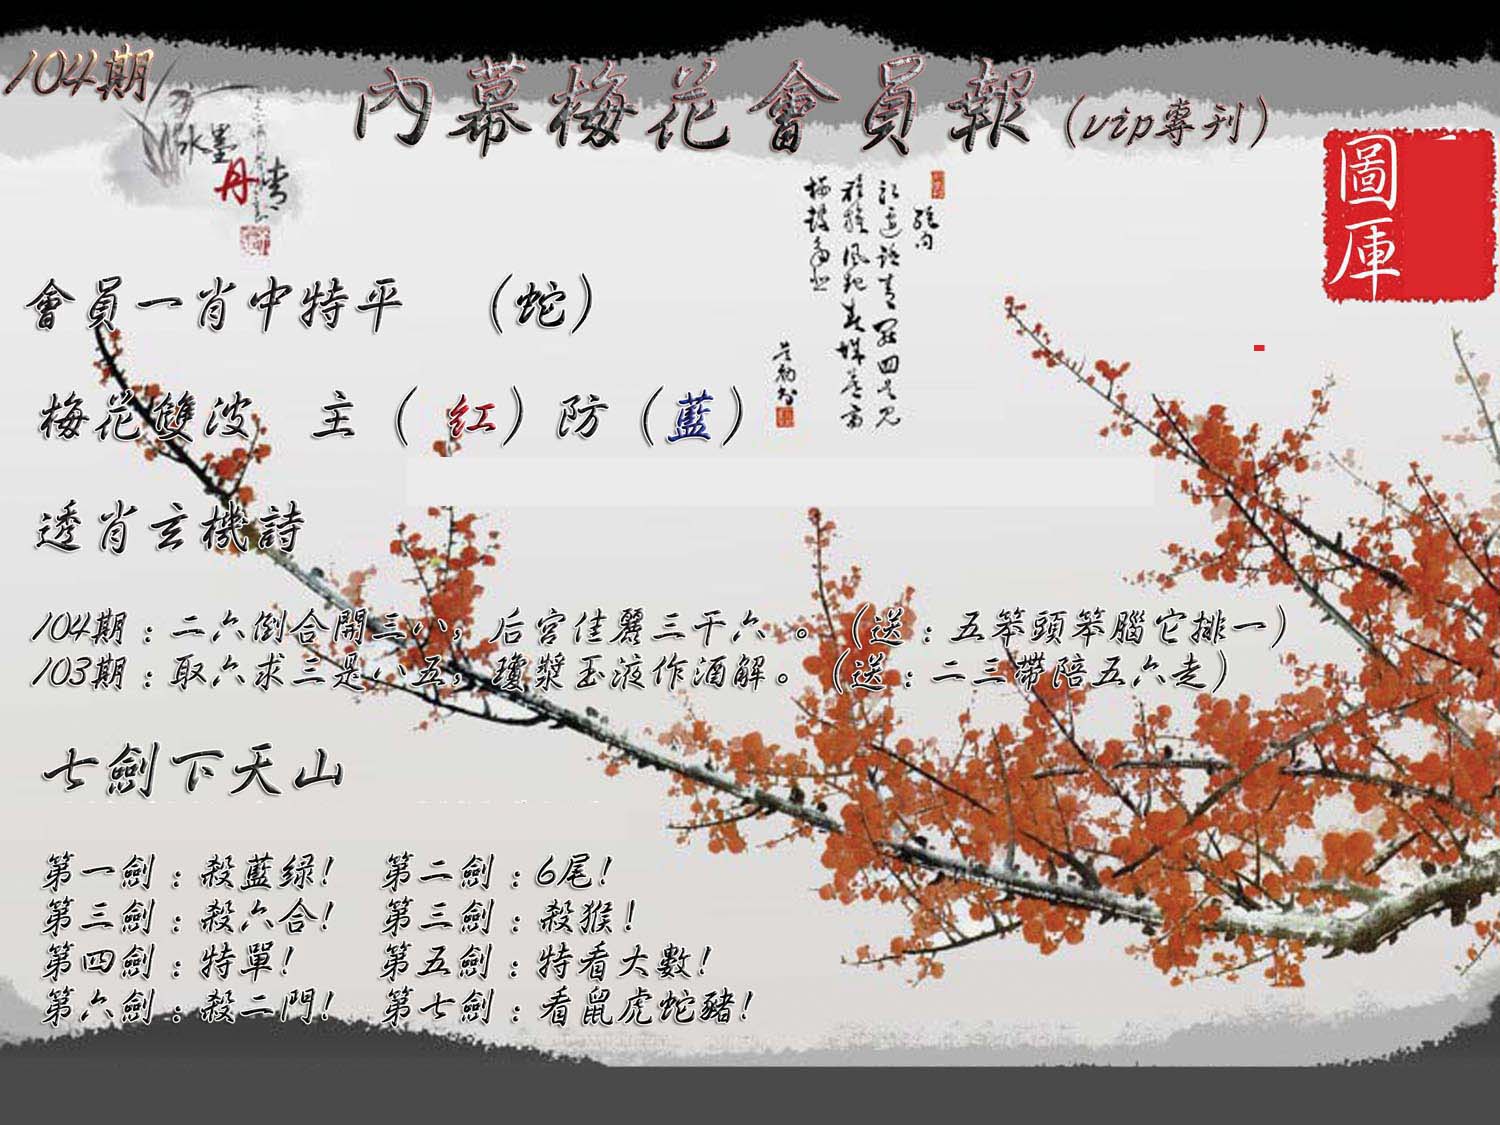 104期
內幕梅花會員報(vip專刊)
水墨
丹青
圖庫
會員一肖中特平 （蛇）
梅花雙波 主（紅）防（藍）
透肖玄機詩
104期：二六倒合開三八，后宮佳麗三千六。（送：五笨頭笨腦它排一）
103期：取六求三是八五，瓊漿玉液作酒解。（送：二三帶陪五六走）
七劍下天山
第一劍：殺藍绿！ 第二劍：6尾！
第三劍：殺六合！ 第三劍：殺猴！
第四劍：特單！ 第五劍：特看大數！
第六劍：殺二門！ 第七劍：看鼠虎蛇豬！